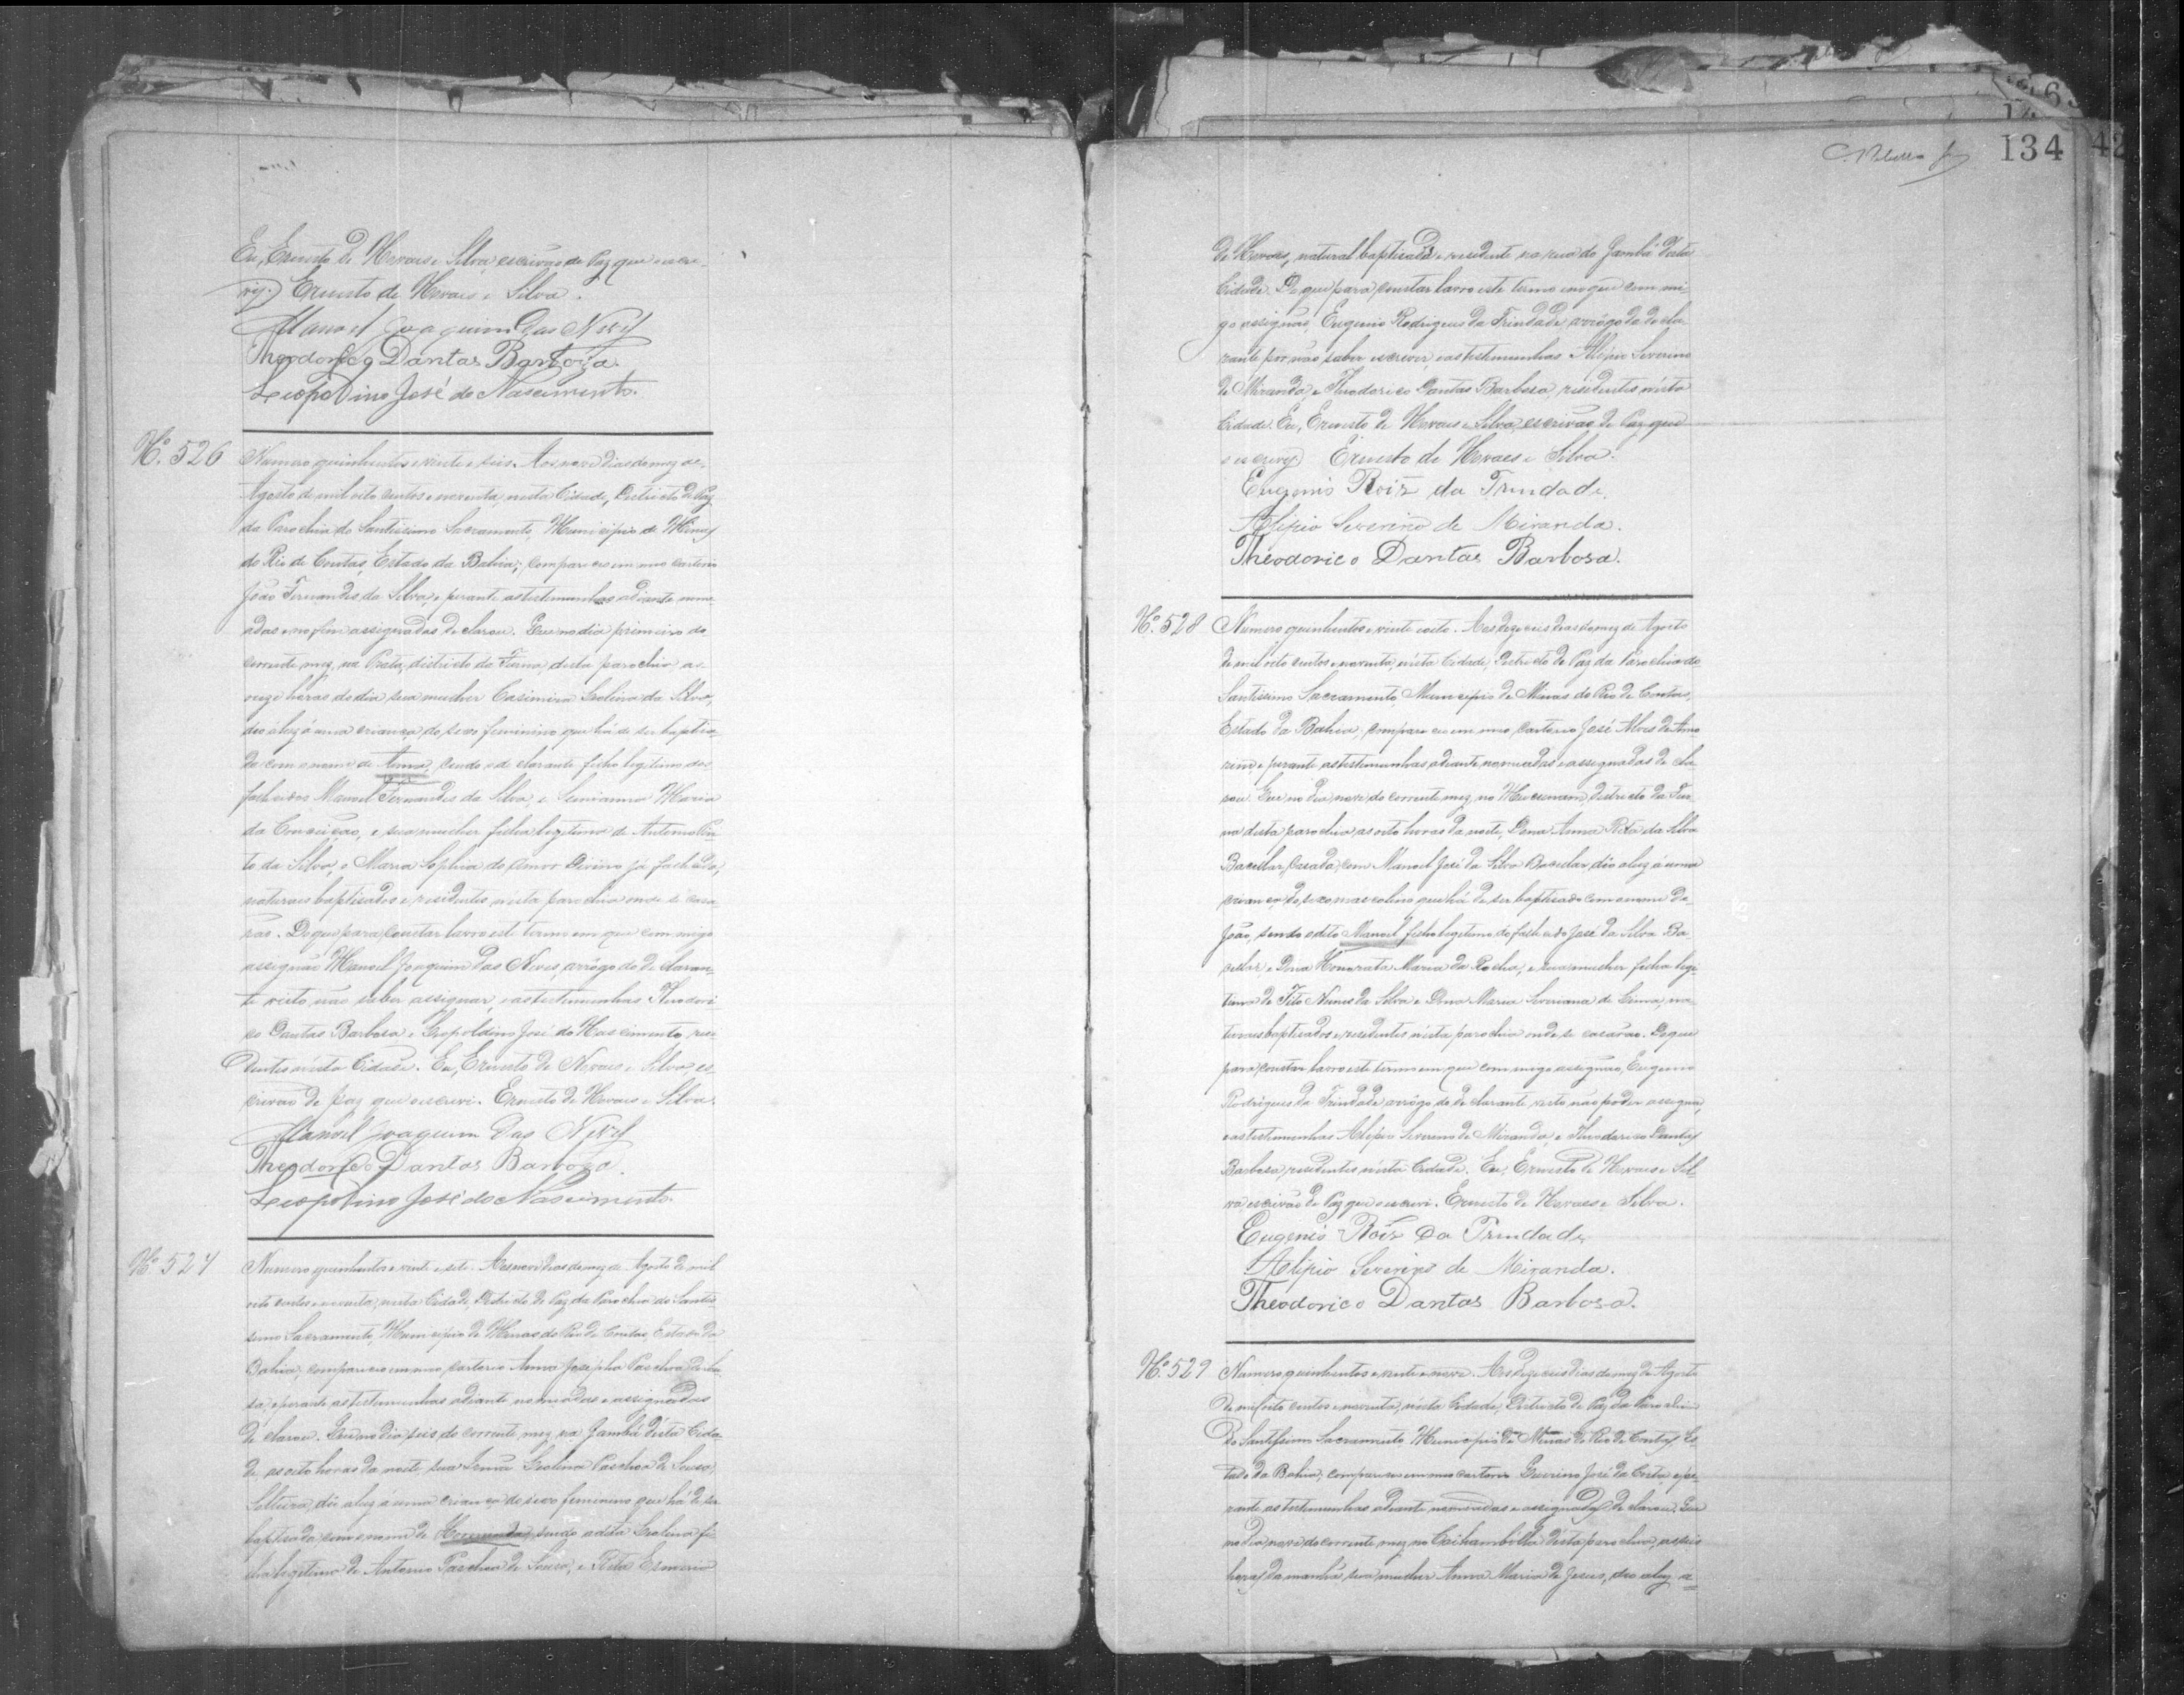 Eu, Ernesto de Novaes e Silva, escrivão de Paz que escre-
vy. Ernesto de Novaes e Silva.
Manoel Joaquim das Neves
Theodorico Dantas Barboza.
Leopoldino José do Nascimento.
Nº. 526
Numero quinhentos e vinte e seis. Aos nove dias do mez de
Agosto de mil oito centos e noventa, nesta Cidade, Districto de Paz
da Parochia do Santissimo Sacramento, Municipio de Minas
do Rio de Contas, Estado da Bahia, compareceo em meo cartorio
João Fernandes da Silva, e perante as testemunhas adiante nome-
adas e no fim assignadas declarou. Que no dia primeiro do
corrente mez, na Prata, districto da Furna, desta parochia, as
onze horas do dia sua mulher Casimira Isolina da Silva,
deo aluz á uma criança, do sexo feminino que há de ser baptisa-
da com o nome de Anna, sendo o declarante filho legitimo dos
fallecidos Manoel Fernandes da Silva, e Maria
da Conceição, e sua mulher filha legitima de Antonio Pin-
to da Silva, e Maria Sophia do Amor Divino já fallecida,
naturaes baptisados e residentes nesta parochia onde se casa-
rão. De que para constar lavro este termo em que com migo
assignão Manoel Joaquim das Neves, arrôgo do declaran-
te visto não saber assignar, e as testemunhas Theodori-
co Dantas Barbosa e Leopoldino José do Nascimento, resi-
dentes nésta Cidade. Eu, Ernesto de Novaes e Silva, es-
crivão de paz que escrevi. Ernesto de Novaes e Silva.
Manoel Joaquim das Neves
Theodorico Dantas Barboza.
Leopoldino José do Nascimento.
Nº 527
Numero quinhentos e vinte e sete. Aos nove dias do mez de Agosto de mil
oito centos e noventa, nesta Cidade, Districto de Paz da Parochia do Santis-
simo Sacramento, Municipio de Minas do Rio de Contas, Estado da
Bahia, compareceo em meo cartorio Anna Josepha Paschoa de Sou-
sa, e perante as testemunhas adiante nomeadas e assignadas
declarou. Que no dia seis do corrente mez, na Jambá désta Cida-
de, as oito horas da noite, sua Irmã Isolina Paschoa de Sousa,
Solteira, dêo aluz á uma criança do sexo feminino que há de ser
baptisada com o nome de sendo a dita Isolina fi-
lha legitima de Antonio Paschoa de Sousa, e Rita Esmeria
134
de Novaes, natural baptisada e residente na rua do Jambá desta
Cidade. De que para constar lavro este termo em que com mi-
go assignão, Eugenio Rodrigues da Trindade, arrôgo da decla-
rante por não saber escrever, e as testemunhas Alipio Severino
de Miranda, e Theodorico Dantas Barbosa, residentes nésta
Cidade. Eu, Ernesto de Novaes e Silva, escrivão de Paz que
o escrevy. Ernesto de Novaes e Silva.
Eugenio Roiz da Trindade.
Alipio Severino de Miranda.
Theodorico Dantas Barbosa.
Nº. 528
Numero quinhentos e vinte e oito. Aos dezeseis dias do mez de Agosto
de mil oito centos e noventa, nésta Cidade, Districto de Paz da Parochia do
Santissimo Sacramento, Municipio de Minas do Rio de Contas,
Estado da Bahia, compareceo em meo cartorio José Alves de Amo-
rim, e perante as testemunhas adiante nomeadas e assignadas decla-
rou. Que no dia nove do corrente mez, no districto da Fur-
na desta parochia, as oito horas da noite, Dona Anna Rita da Silva
Bacellar, casada com Manoel José da Silva Bacellar, dêo aluz á uma
criança do sexo mascolino que há de ser baptisado com o nome de
João, sendo o dito Manoel filho legitimo do fallecido José da Silva Ba-
cellar, e Dona Honorata Maria da Rocha, e sua mulher filha legi-
tima de Tito Nunes da Silva e Dona Maria Severiana de Lima, na-
turaes baptisados e residentes nésta parochia onde se casarão. De que
para constar lavro este termo em que com migo assignão, Eugenio
Rodrigues da Trindade, arrôgo do declarante, visto não poder assignar,
e as testemunhas Alipio Severino de Miranda e Theodorico Dantas
Barbosa, residentes nésta Cidade. Eu, Ernesto de Novaes e Sil-
va escrivão de Paz que o escrevi. Ernesto de Novaes e Silva.
Eugenio Roiz da Trindade
Alipio Severino de Miranda.
Theodorico Dantas Barbosa.
Nº. 529
Numero quinhentos e vinte e nove. Aos dezeseis dias do mez de Agosto
de mil oito centos e noventa, nésta Cidade, Districto de Paz da Parochia
do Santissimo Sacramento Municipio de Minas do Rio de Contas, Es-
tado da Bahia, compareceo em meo cartorio José da Costa, e pe-
rante as testemunhas adiante nomeadas e assignadas declarou. Que
no dia nove do corrente mez, no désta parochia, as seis
horas da manhã, sua mulher Anna Maria de Jesus, deo aluz a